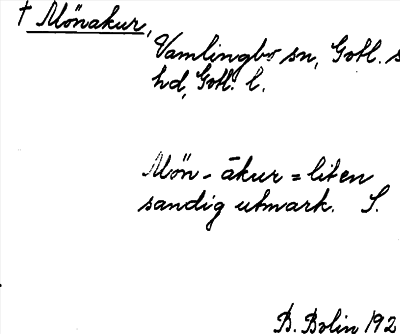 † Mönakur,
Vamlingbo sn, Gotl. s
hd, Gotl. l.
Mön - ākur = liten
sandig utmark. S.
B. Bolin 192